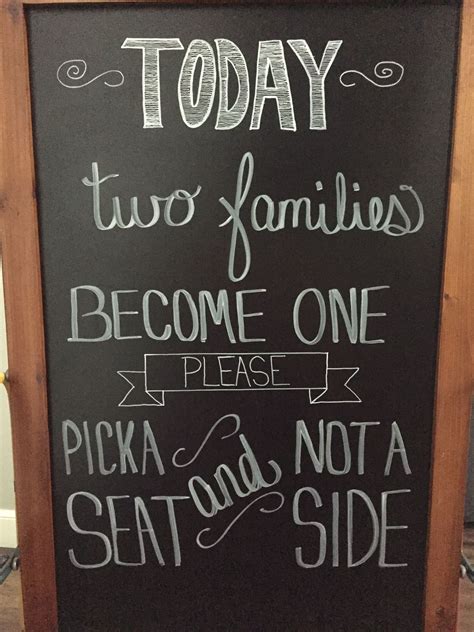 TODAY
two families
BECOME ONE
PLEASE
PICK A
SEAT
and
NOT A
SIDE